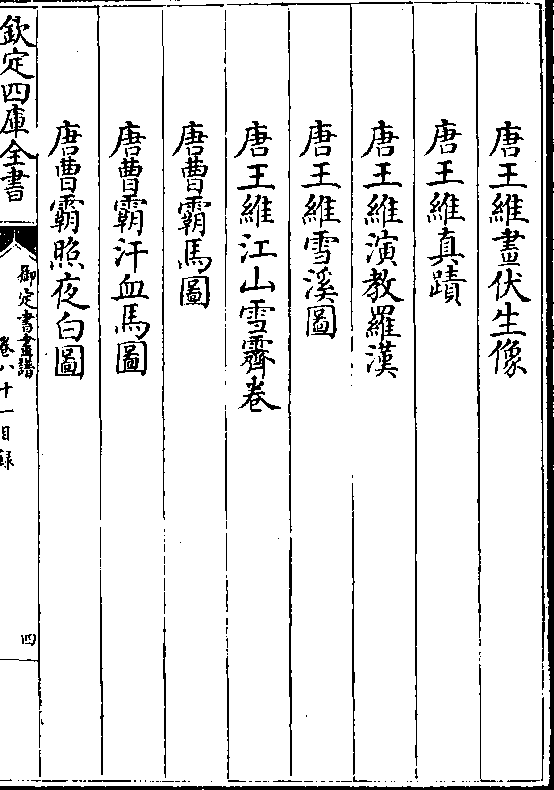 唐王維畫伏生像
唐王維真蹟
唐王維演教羅漢
唐王維雪溪圖
唐王維江山雪霽卷
唐曹霸馬圖
唐曹霸汗血馬圖
唐曹霸照夜白圖
欽定四庫全書
御定書畫譜
卷八十一目録
四